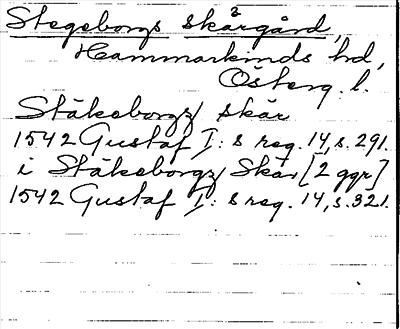 Stegeborgs skärgård,
Hammarkinds hd,
Österg. l.
Stäkeborgz skär
1542 Gustaf I: s reg. 14, s. 291.
i Stäkeborgz Skär [2 ggr]
1542 Gustaf I: s reg. 14, s. 321.